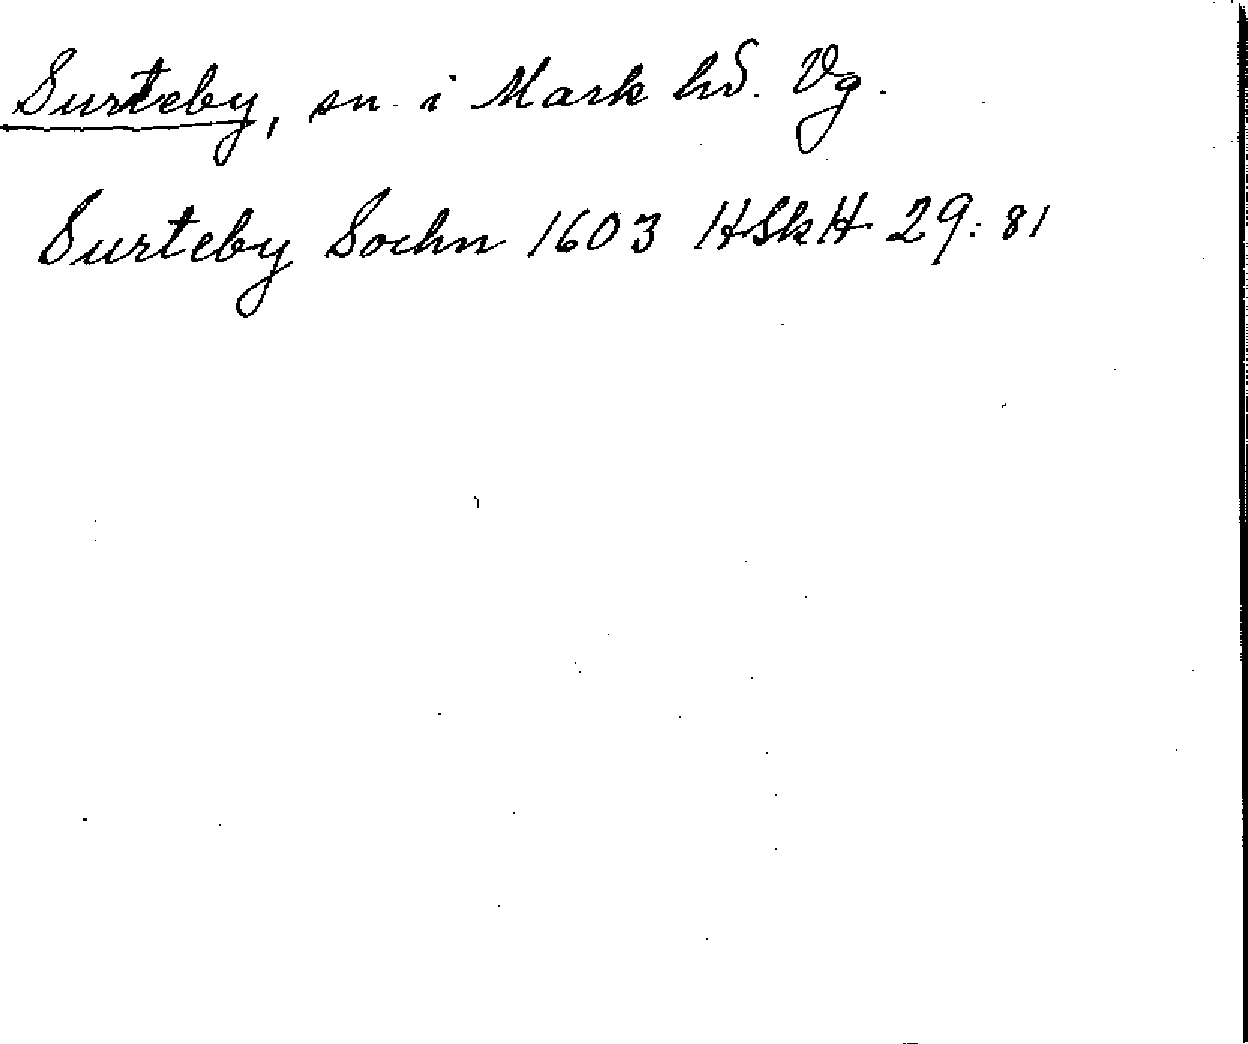 Surteby, sn i Mark hd. Vg.
Surteby Sochn 1603 HSkH 29:81